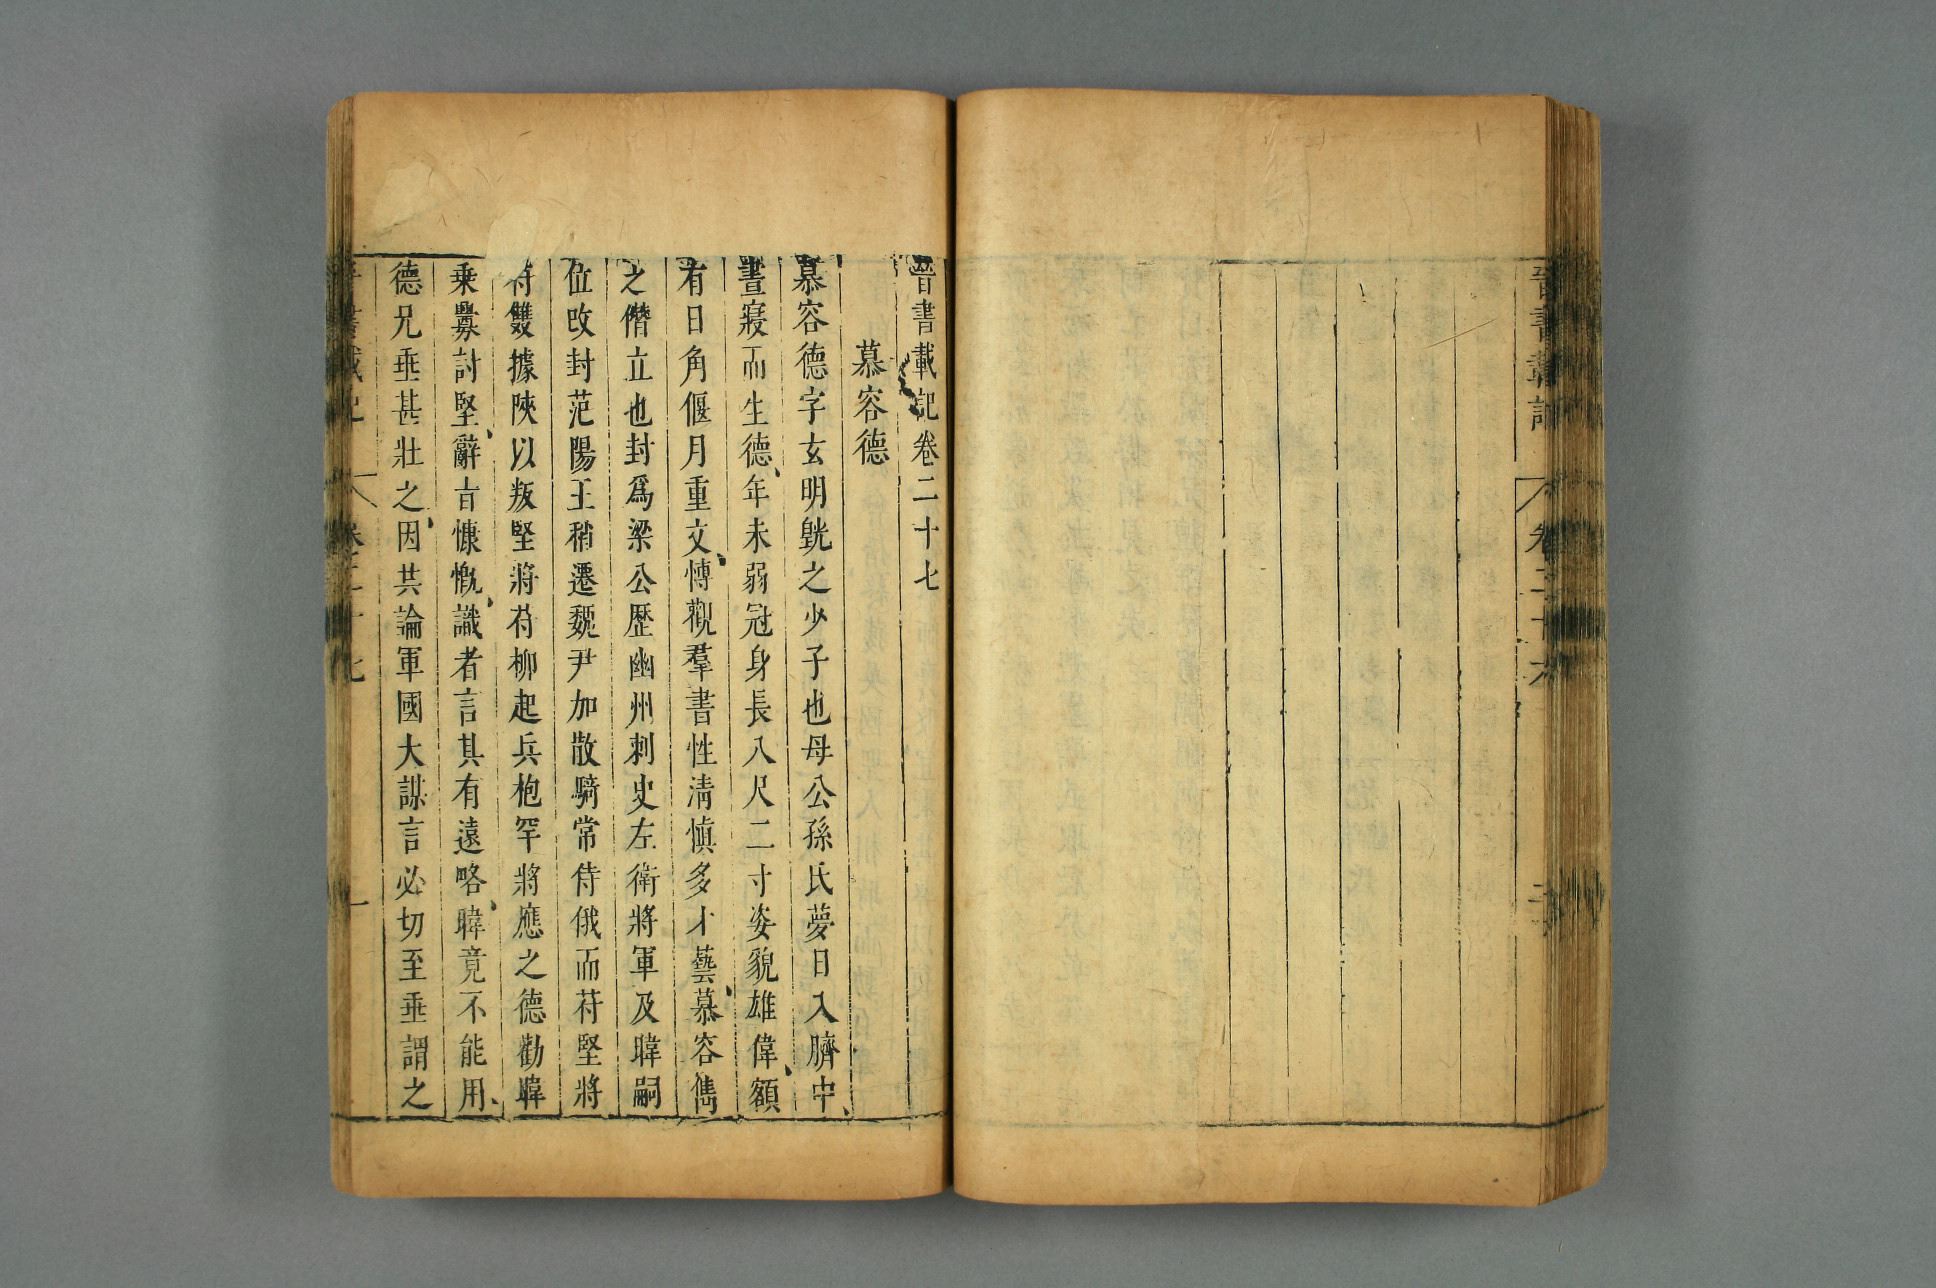 晉書載記
卷二十六
晉書載記卷二十七
慕容德
慕容德字玄明皝之少子也母公孫氏夢日入臍中
晝寢而生德年未弱冠身長八尺二寸姿貌雄偉額
有日角偃月重文慱觀羣書性清愼多才藝慕容儁
之僭立也封爲梁公歷幽州刺史左衛將軍及暐嗣
位改封范陽王稍遷魏尹加散騎常侍俄而苻堅將
苻雙據陝以叛堅將苻柳起兵枹罕將應之德勸暐
乗釁討堅辭旨慷慨識者言其有遠略暐竟不能用
德兄垂甚壯之因共論軍國大謀言必切至垂謂之
晉書載記
卷二十七
一